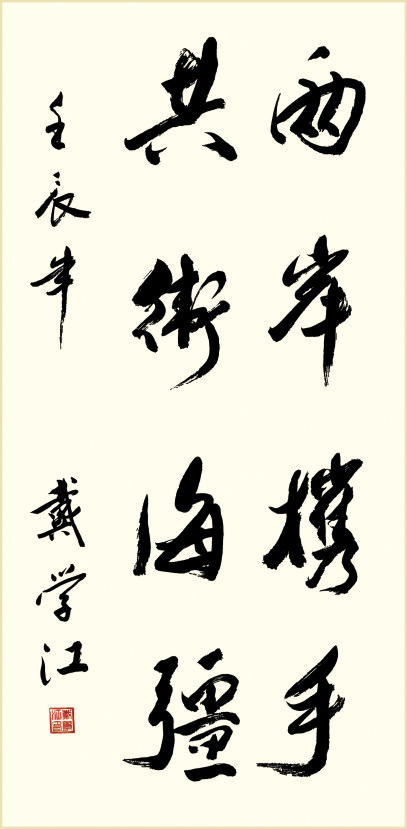 两岸携手
共衛海疆
壬辰年 戴学江